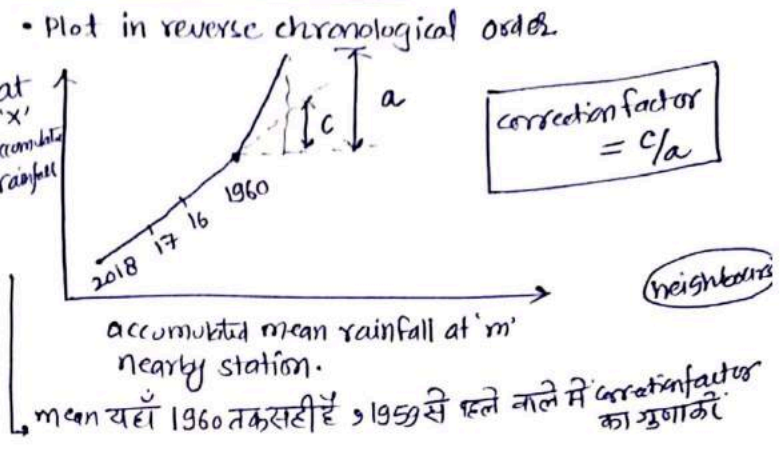 • Plot in reverse chronological order
at
'x'
rainfall
a
c
correction factor
= c/a
1960
16
17
2018
neighbours
accumulated mean rainfall at 'm'
nearby station.
mean यहाँ 1960 तक सही है, 1959 से पहले वाले में correction factor
का गुणा करें